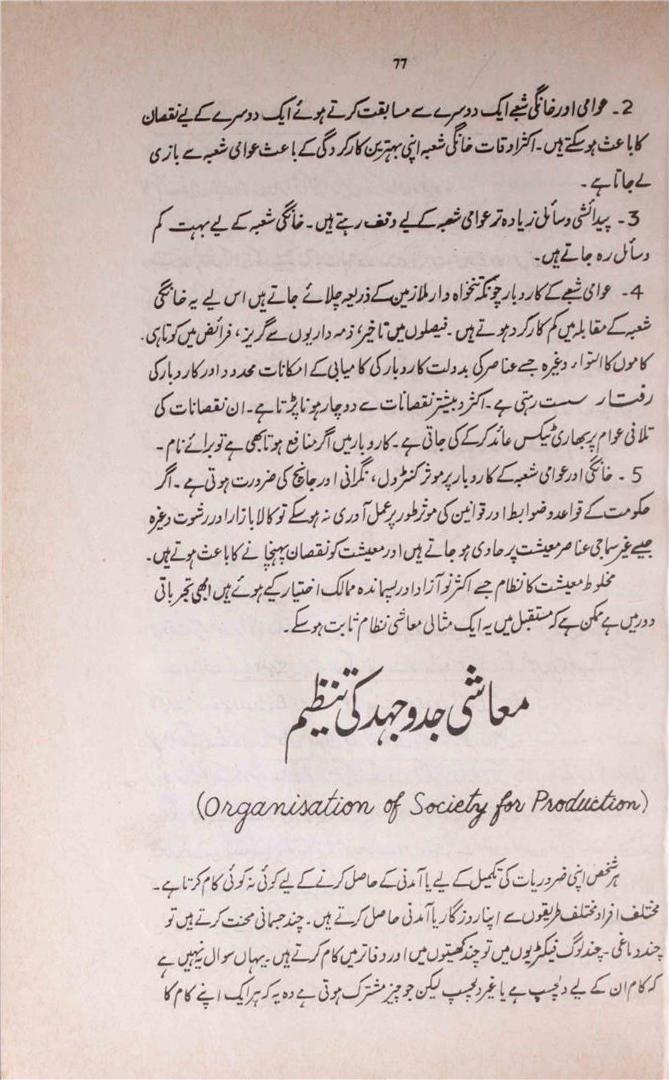 77
2 ۔ عوامی اور خانگی شعبے ایک دوسرے سے مسابقت کرتے ہوئے ایک دوسرے کے لیے نقصان
کا باعث ہو سکتے ہیں۔ اکثر اوقات خانگی شعبہ اپنی بہترین کارکردگی کے باعث عوامی شعبہ سے بازی
لے جاتا ہے ۔
3 ۔ پیدائشی وسائل زیادہ تر عوامی شعبہ کے لیے وقف رہتے ہیں ۔ خانگی شعبہ کے لیے بہت کم
وسائل رہ جاتے ہیں۔
4 ۔ عوامی شعبے کے کاروبار چونکہ تنخواہ دار ملازمین کے ذریعہ چلائے جاتے ہیں اس لیے یہ خانگی
شعبہ کے مقابلہ میں کم کارکرد ہوتے ہیں ۔ فیصلوں میں تاخیر، ذمہ داریوں سے گریز، فرائض میں کوتاہی،
کاموں کا التوا، وغیرہ جیسے عناصر کی بدولت کاروبار کی کامیابی کے امکانات محدود اور کاروبار کی
رفتار سست رہتی ہے ۔ اکثر و بیشتر نقصانات سے دوچار ہونا پڑتا ہے ۔ ان نقصانات کی
تلافی عوام پر بھاری ٹیکس عائد کر کے کی جاتی ہے ۔ کاروبار میں اگر منافع ہوتا بھی ہے تو برائے نام ۔
5 ۔ خانگی اور عوامی شعبہ کے کاروبار پر موثر کنٹرول، نگرانی اور جانچ کی ضرورت ہوتی ہے ۔ اگر
حکومت کے قواعد و ضوابط اور قوانین کی موثر طور پر عمل آوری نہ ہو سکے تو کالا بازار اور رشوت وغیرہ
جیسے غیر سماجی عناصر معیشت پر حاوی ہو جاتے ہیں اور معیشت کو نقصان پہنچانے کا باعث ہوتے ہیں۔
مخلوط معیشت کا نظام جسے اکثر نو آزاد اور پسماندہ ممالک اختیار کیے ہوئے ہیں ابھی تجرباتی
دور میں ہے ممکن ہے کہ مستقبل میں یہ ایک مثالی معاشی نظام ثابت ہو سکے ۔
معاشی جدوجہد کی تنظیم
(Organisation of Society for Production)
ہر شخص اپنی ضروریات کی تکمیل کے لیے یا آمدنی کے حاصل کرنے کے لیے کوئی نہ کوئی کام کرتا ہے ۔
مختلف افراد مختلف طریقوں سے اپنا روزگار یا آمدنی حاصل کرتے ہیں ۔ چند جسمانی محنت کرتے ہیں تو
چند دماغی ۔ چند لوگ فیکٹریوں میں تو چند کھیتوں میں اور دفاتر میں کام کرتے ہیں ۔ یہاں سوال یہ نہیں ہے
کہ کام ان کے لیے دلچسپ ہے یا غیر دلچسپ لیکن جو چیز مشترک ہوتی ہے وہ یہ کہ ہر ایک اپنے کام کا